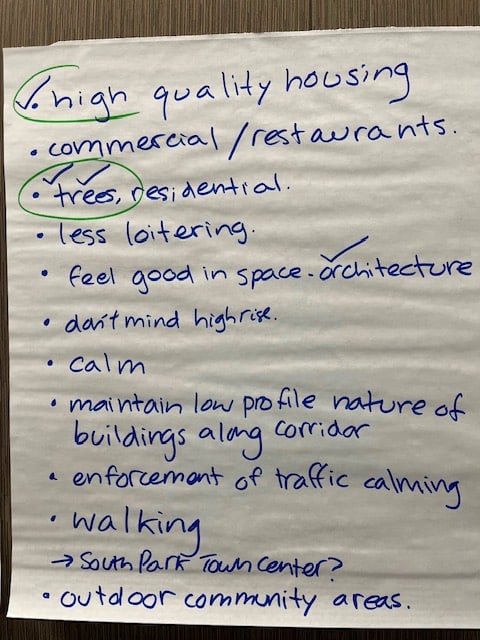 ✓• high quality housing
• commercial/restaurants.
• trees, residential.
• less loitering.
• feel good in space - architecture
• don't mind highrise.
• calm
• maintain low profile nature of
buildings along corridor
• enforcement of traffic calming
• walking
→ South Park Town Center?
• outdoor community areas.